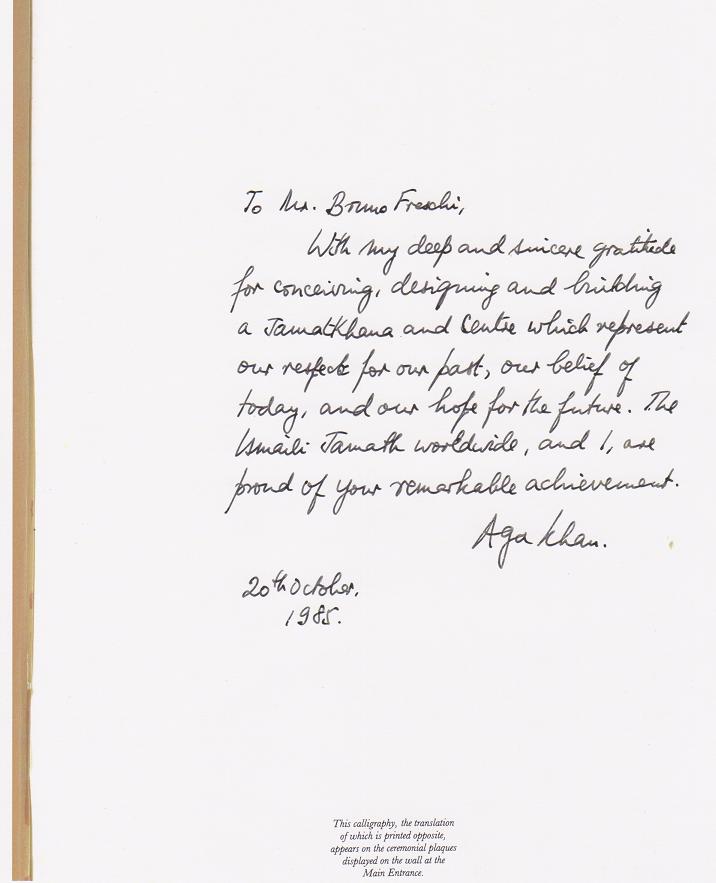 To Mr. Bruno Freschi,
With my deep and sincere gratitude
for conceiving, designing and building
a Jamatkhana and Centre which represent
our respect for our past, our belief of
today, and our hope for the future. The
Ismaili Jamath worldwide, and I, are
proud of your remarkable achievement.
Aga Khan.
20th October.
1985.
This calligraphy, the translation
of which is printed opposite,
appears on the ceremonial plaques
displayed on the wall at the
Main Entrance.